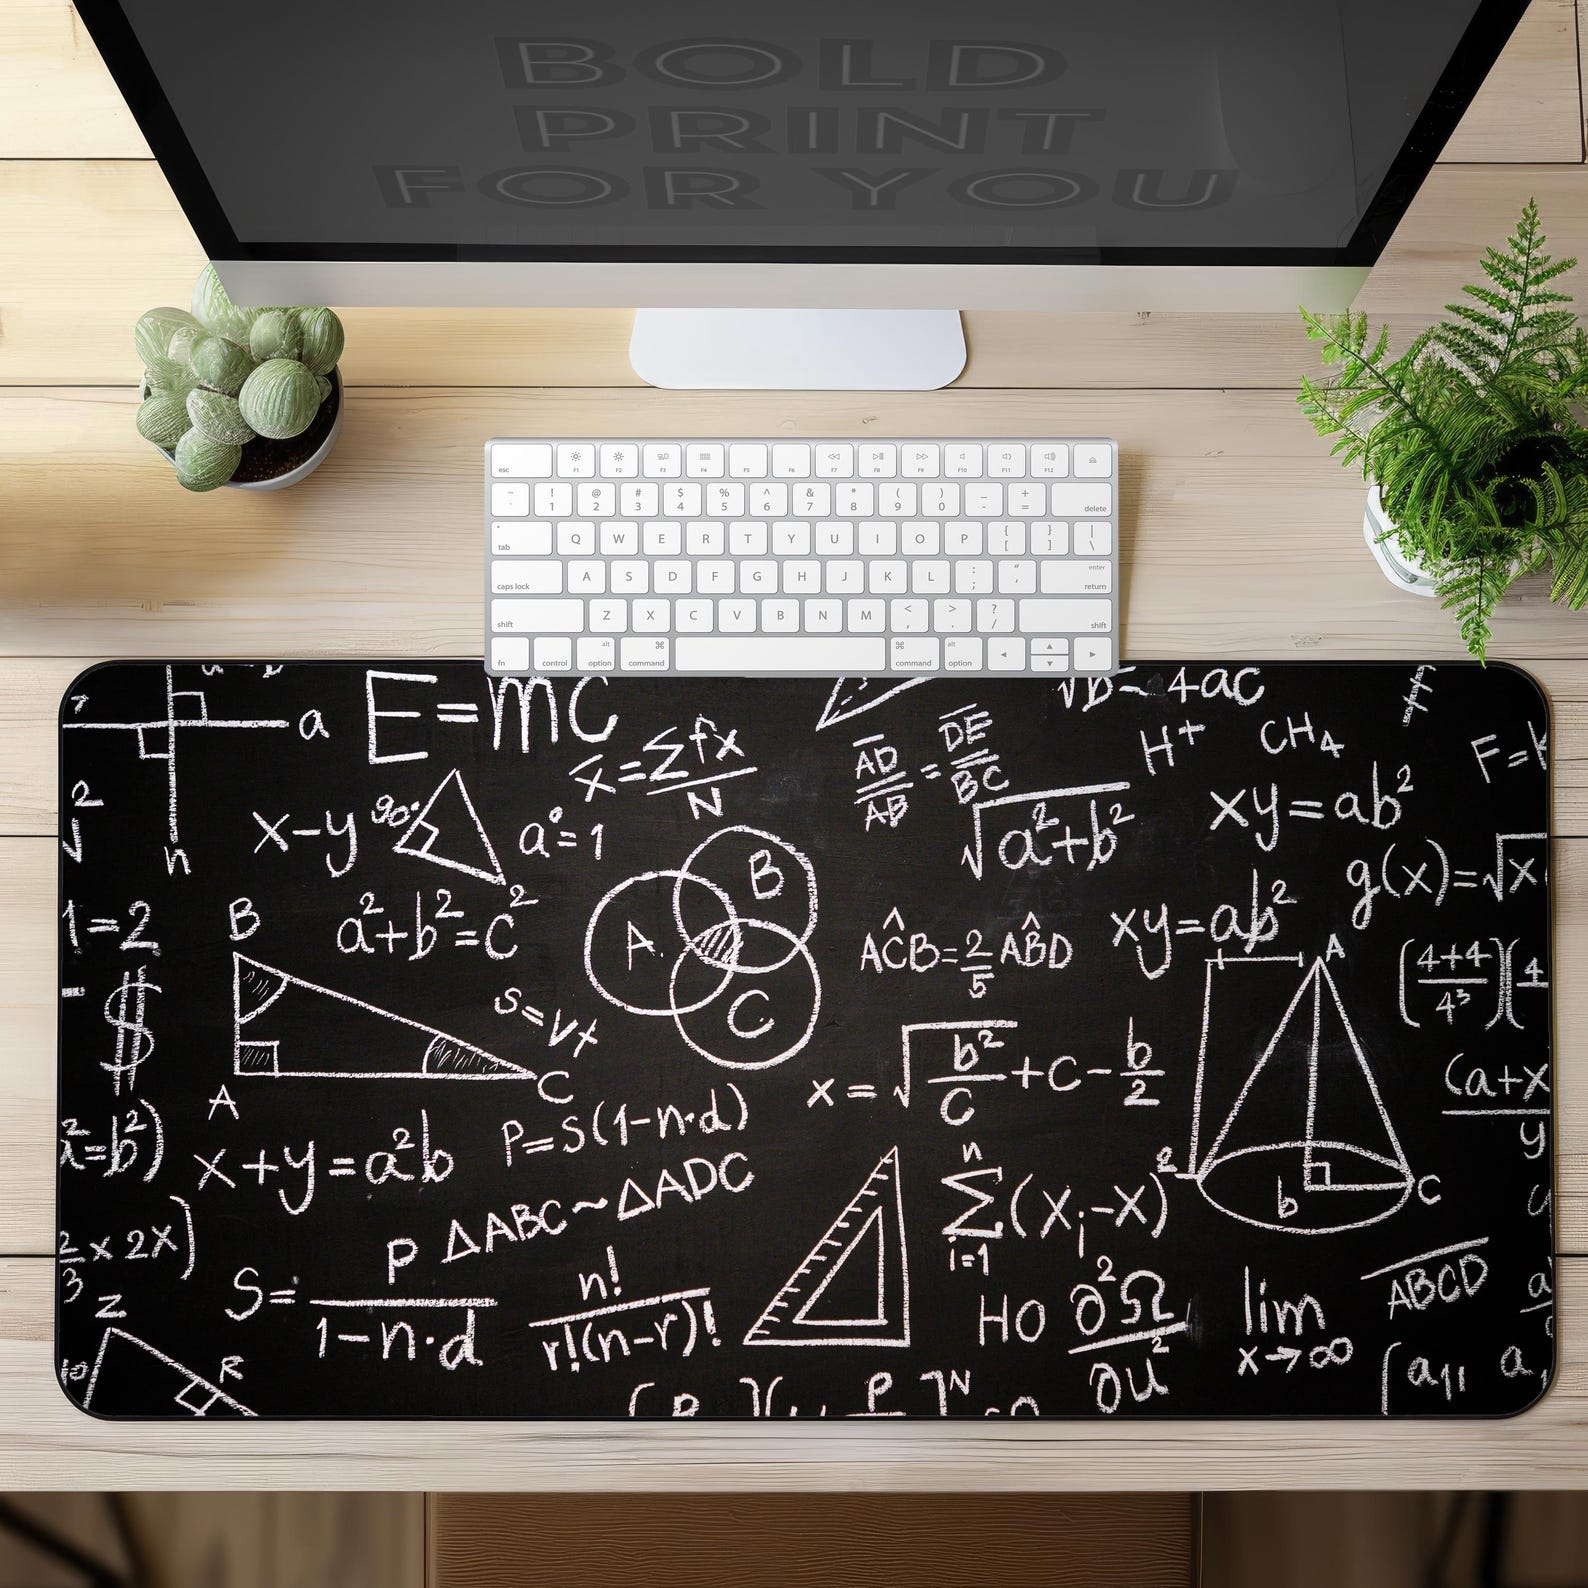 BOLD
PRINT
FOR YOU
esc F1 F2 F3 F4 F5 F6 F7 F8 F9 F10 F11 F12
~ ` ! 1 @ 2 # 3 $ 4 % 5 ^ 6 & 7 * 8 ( 9 ) 0 _ - + = delete
tab Q W E R T Y U I O P { [ } ] | \
caps lock A S D F G H J K L : ; " ' enter return
shift Z X C V B N M < , > . ? / shift
fn control alt option ⌘ command ⌘ command alt option
a
n
E=mc
√b²-4ac
x̄=Σfx/N
AD/AB = DE/BC
H⁺
CH₄
F=
2
x-y
90°
a°=1
√a²+b²
xy=ab²
g(x)=√x
1=2
B
a²+b²=c²
A
B
C
AĈB=2/5 AB̂D
xy=ab²
A
(4+4/4³)(4
$
s=vt
C
A
x=√b²/c+c-b/2
(a+x
y
a²=b²)
x+y=a²b
P=S(1-n·d)
ΔABC~ΔADC
n
Σ(xᵢ-x)²
i=1
b
C
2/3 x 2x)
S=P/1-n·d
n!/r!(n-r)!
HO
∂²Ω/∂u²
lim
x→∞
ABCD
a
Z
R
10
P
P
N
a₁₁ a